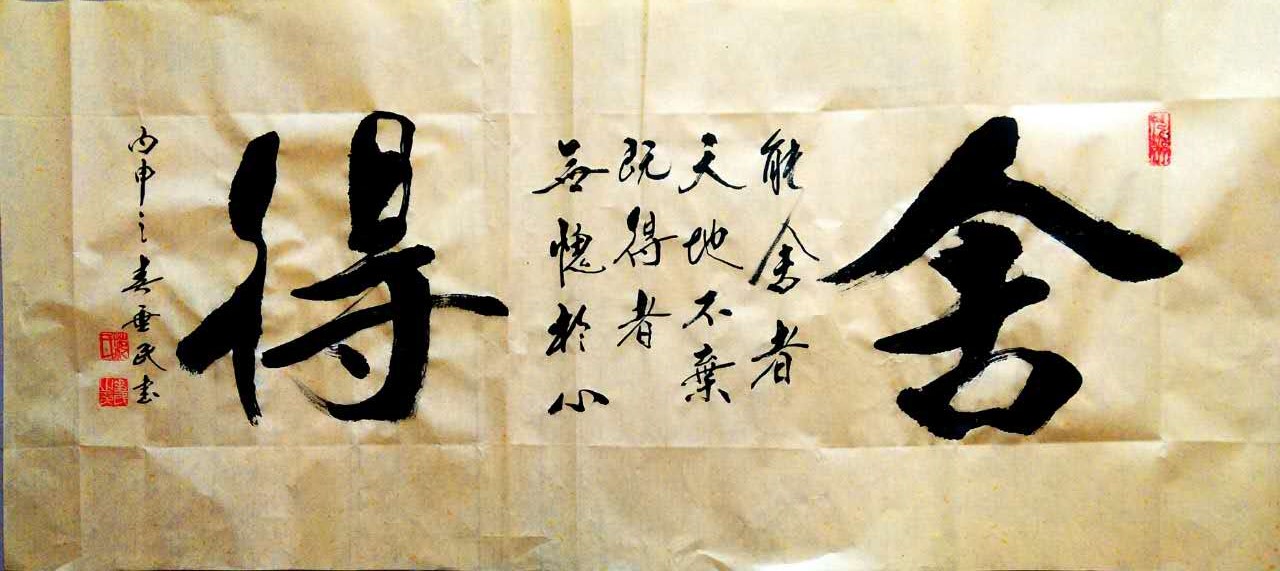 舍
能舍者
天地不棄
既得者
無愧於心
得
丙申之春垂民書